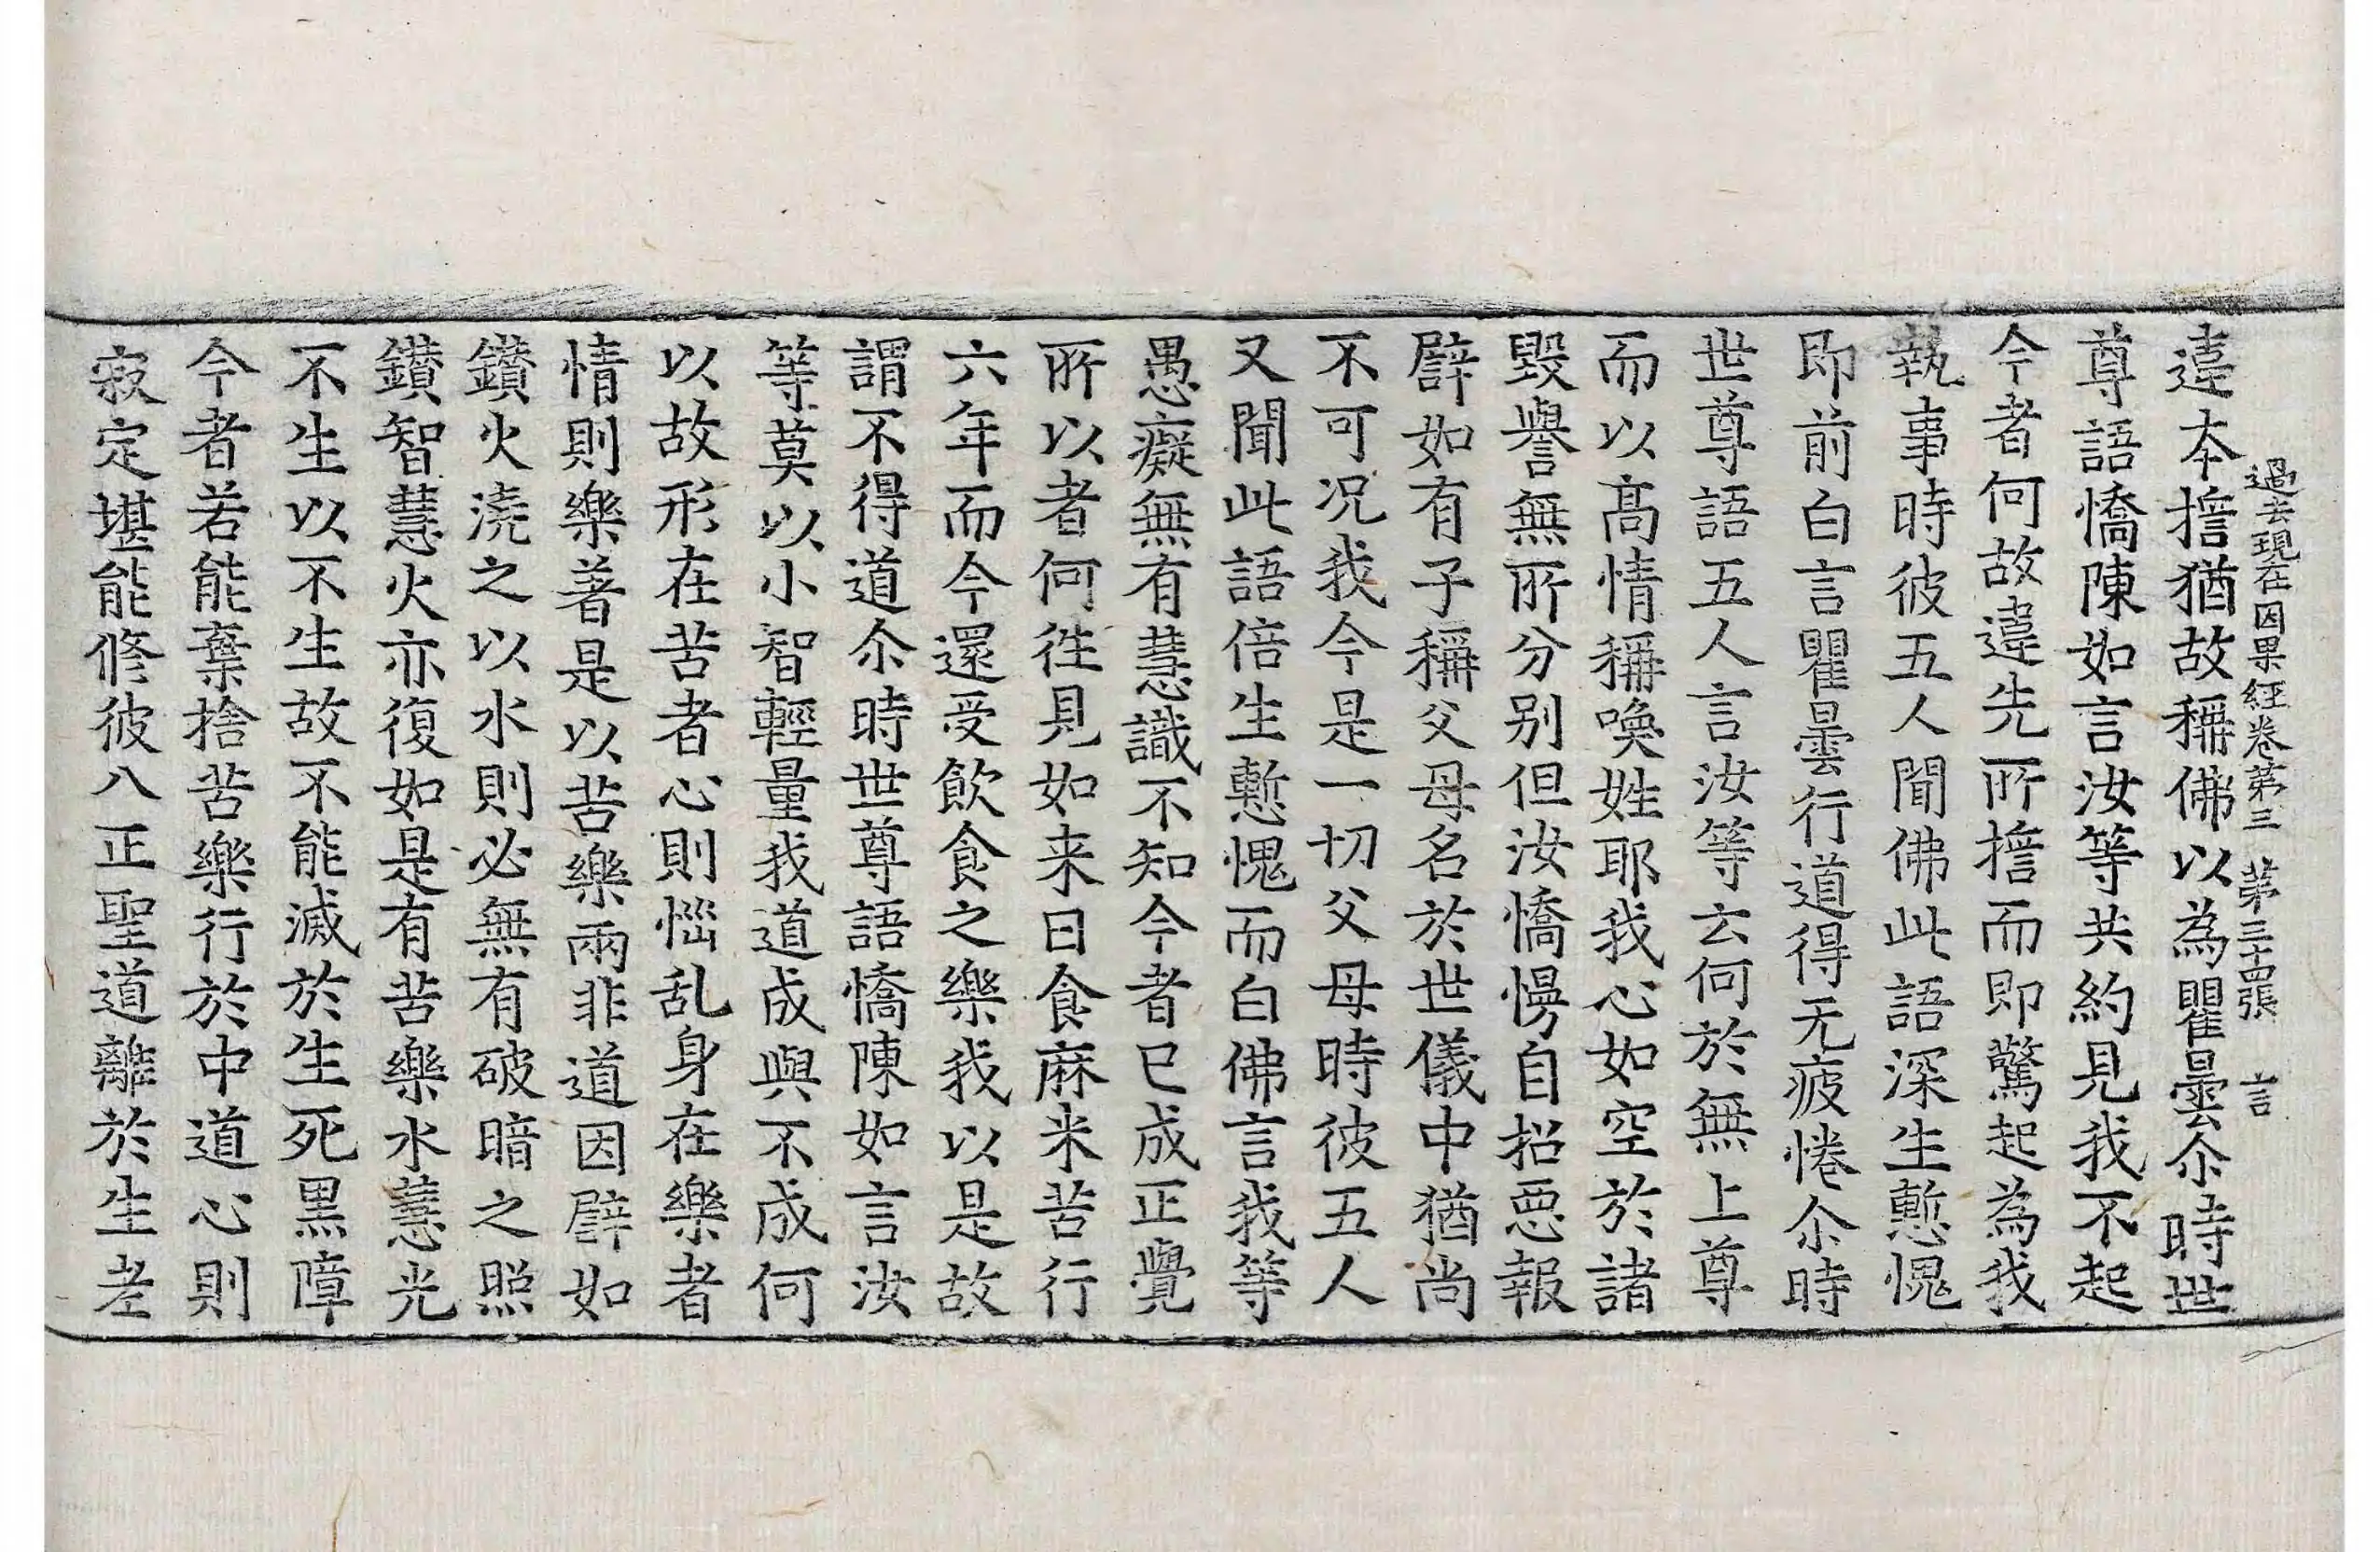 過去現在因果経卷第三 第三十四張 言
違本擔猶故稱佛以為瞿曇尒時世
尊語憍陳如言汝等共約見我不起
今者何故違先所擔而即驚起為我
執事時彼五人聞佛此語深生慙愧
即前白言瞿曇行道得无疲惓尒時
世尊語五人言汝等云何於無上尊
而以髙情稱喚姓耶我心如空於諸
毀譽無所分別但汝憍慢自招惡報
譬如有子稱父母名於世儀中猶尚
不可况我今是一切父母時彼五人
又聞此語倍生慙愧而白佛言我等
愚癡無有慧識不知今者已成正覺
所以者何徃見如来日食麻米苦行
六年而今還受飲食之樂我以是故
謂不得道尒時世尊語憍陳如言汝
等莫以小智輕量我道成與不成何
以故形在苦者心則惱乱身在樂者
情則樂著是以苦樂兩非道因譬如
鑚火澆之以水則必無有破暗之照
鑚智慧火亦復如是有苦樂水慧光
不生以不生故不能滅於生死黒障
今者若能棄捨苦樂行於中道心則
寂定堪能修彼八正聖道離於生老